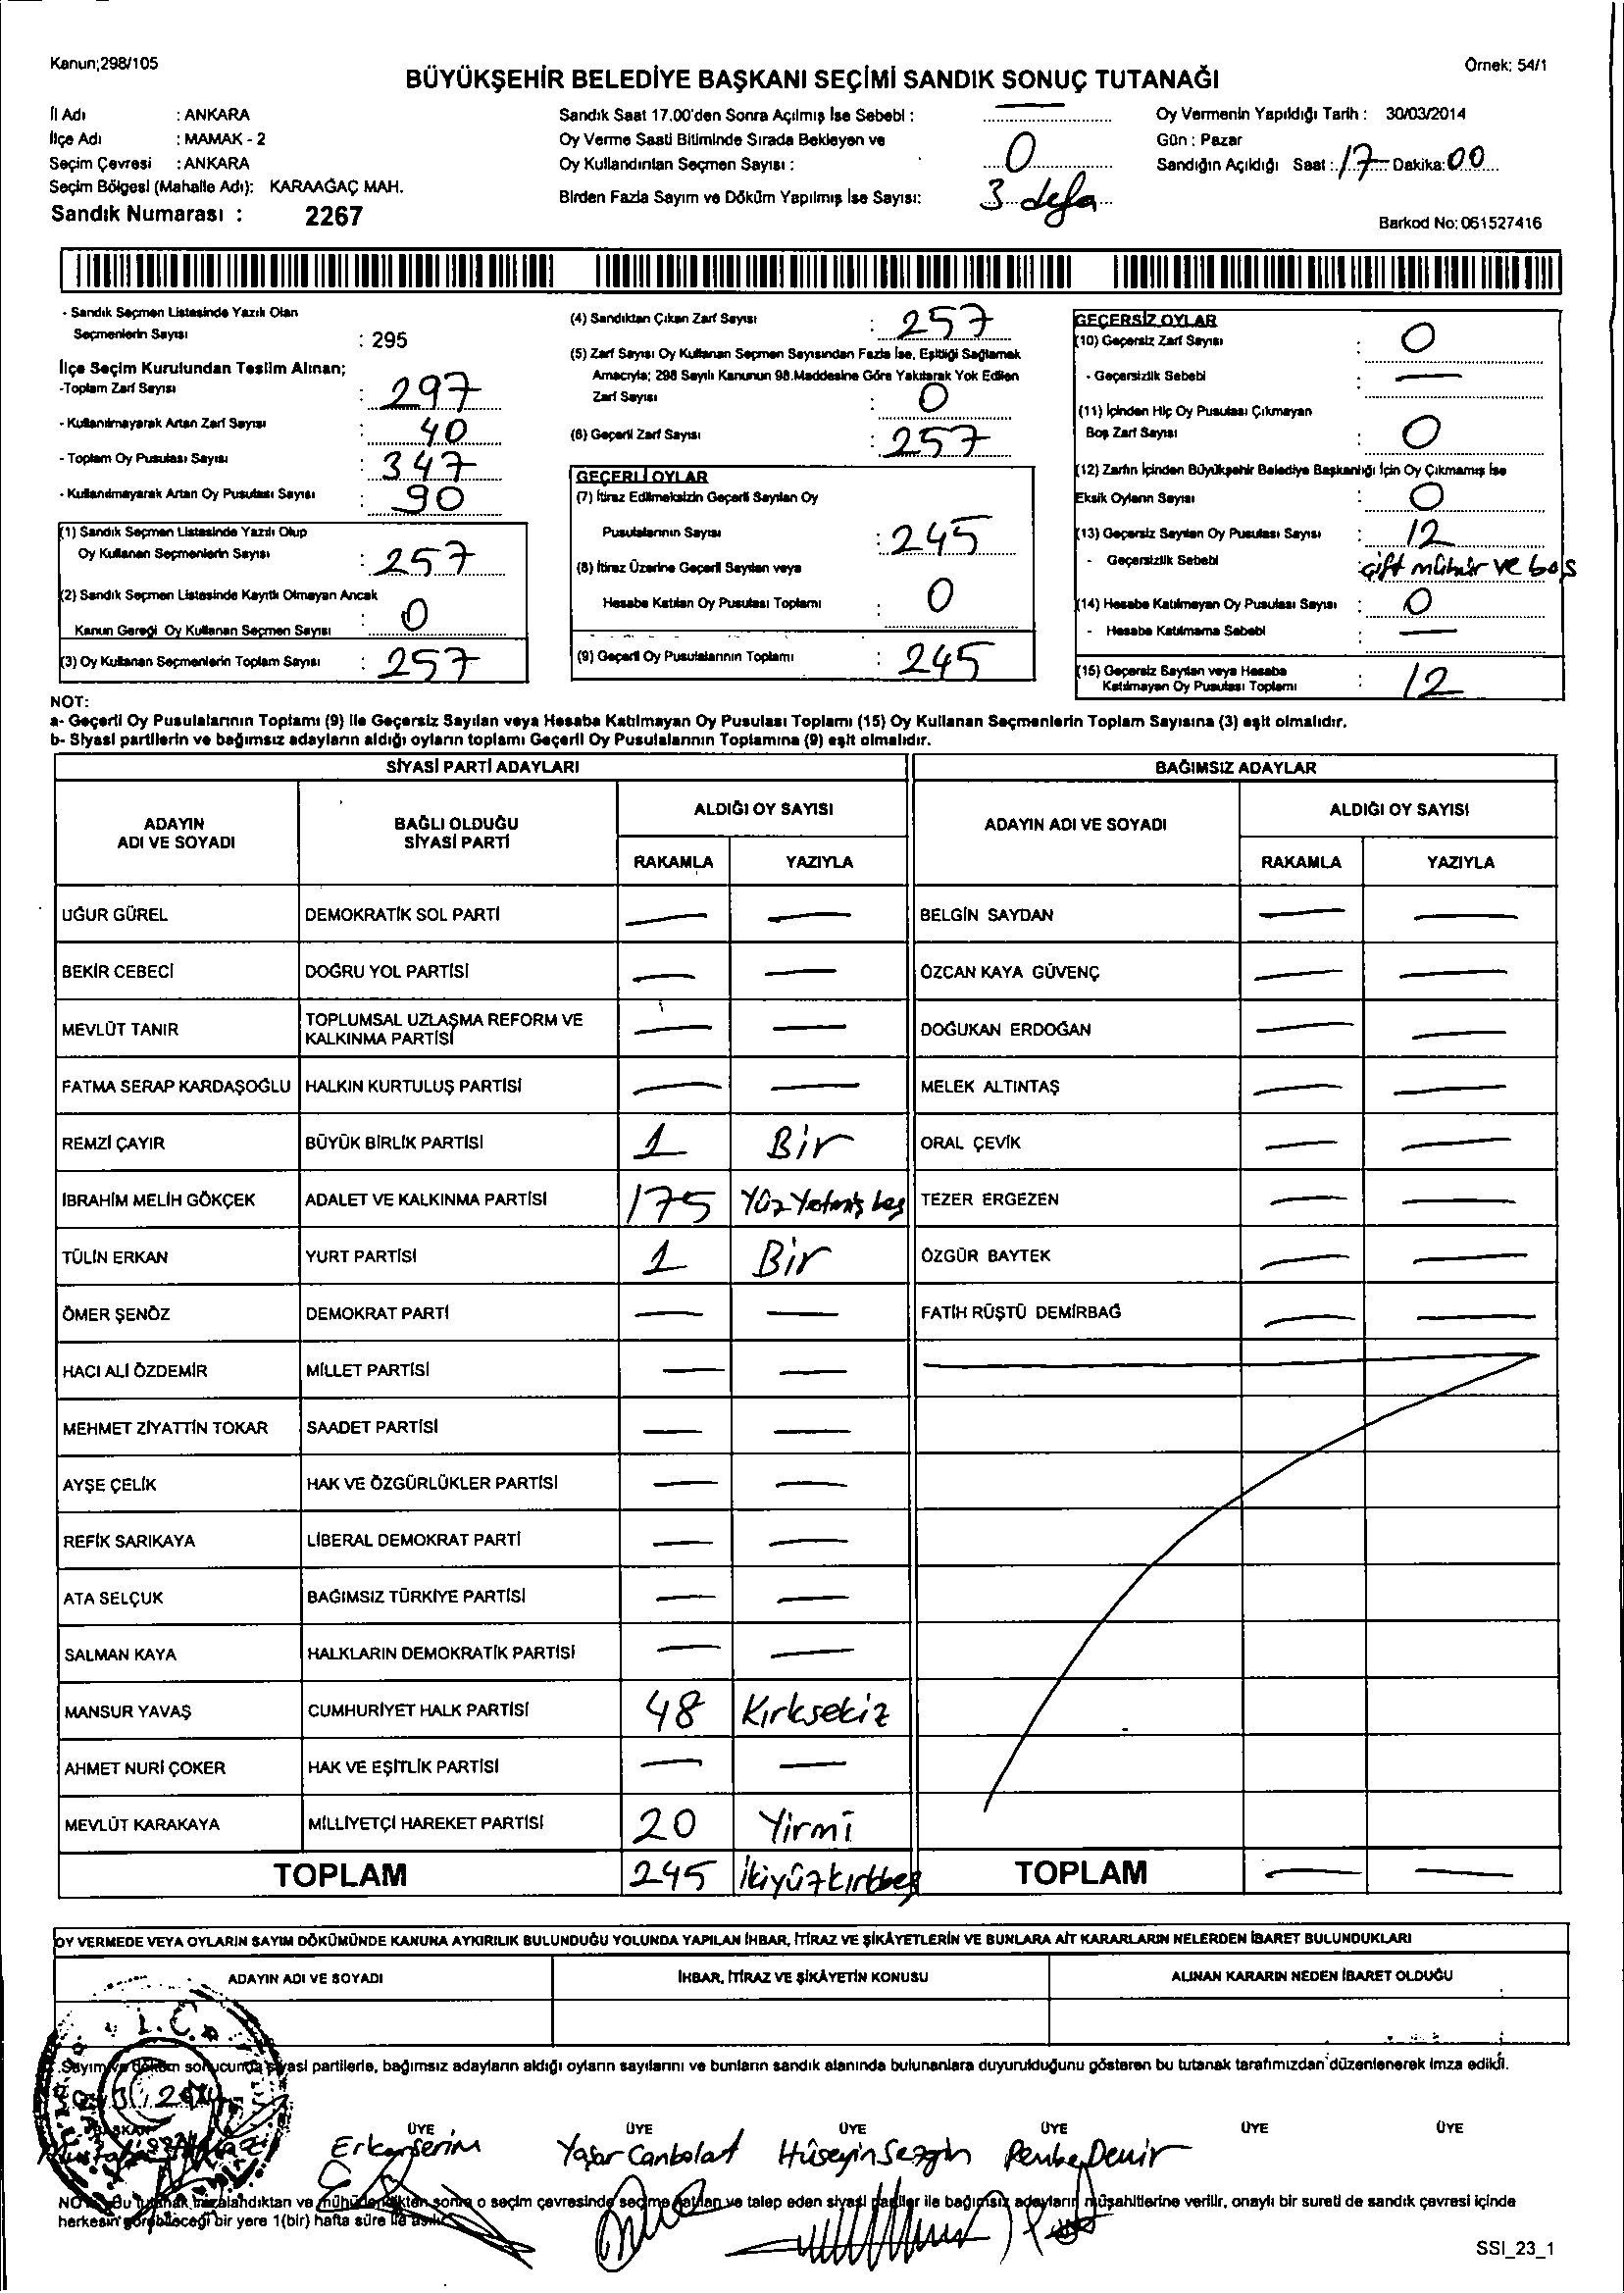 Kanun;298/105
Örnek: 54/1
BÜYÜKŞEHİR BELEDİYE BAŞKANI SEÇİMİ SANDIK SONUÇ TUTANAĞI
İl Adı : ANKARA
İlçe Adı : MAMAK - 2
Seçim Çevresi : ANKARA
Seçim Bölgesi (Mahalle Adı): KARAAĞAÇ MAH.
Sandık Numarası : 2267
Sandık Saat 17.00'den Sonra Açılmış İse Sebebi : —
Oy Verme Saati Bitiminde Sırada Bekleyen ve
Oy Kullandırılan Seçmen Sayısı : 0
Birden Fazla Sayım ve Döküm Yapılmış İse Sayısı: 3 defa
Oy Vermenin Yapıldığı Tarih : 30/03/2014
Gün : Pazar
Sandığın Açıldığı Saat : 17 Dakika: 00
Barkod No: 061527416
- Sandık Seçmen Listesinde Yazılı Olan
Seçmenlerin Sayısı : 295
İlçe Seçim Kurulundan Teslim Alınan;
-Toplam Zarf Sayısı : 297
- Kullanılmayarak Artan Zarf Sayısı : 40
- Toplam Oy Pusulası Sayısı : 347
- Kullanılmayarak Artan Oy Pusulası Sayısı : 90
(1) Sandık Seçmen Listesinde Yazılı Olup
Oy Kullanan Seçmenlerin Sayısı : 257
(2) Sandık Seçmen Listesinde Kayıtlı Olmayan Ancak
Kanun Gereği Oy Kullanan Seçmen Sayısı : 0
(3) Oy Kullanan Seçmenlerin Toplam Sayısı : 257
(4) Sandıktan Çıkan Zarf Sayısı : 257
(5) Zarf Sayısı Oy Kullanan Seçmen Sayısından Fazla İse, Eşitliği Sağlamak
Amacıyla; 298 Sayılı Kanunun 98.Maddesine Göre Yakılarak Yok Edilen
Zarf Sayısı : 0
(6) Geçerli Zarf Sayısı : 257
GEÇERLİ OYLAR
(7) İtiraz Edilmeksizin Geçerli Sayılan Oy
Pusulalarının Sayısı : 245
(8) İtiraz Üzerine Geçerli Sayılan veya
Hesaba Katılan Oy Pusulası Toplamı : 0
(9) Geçerli Oy Pusulalarının Toplamı : 245
GEÇERSİZ OYLAR
(10) Geçersiz Zarf Sayısı : 0
- Geçersizlik Sebebi : —
(11) İçinden Hiç Oy Pusulası Çıkmayan
Boş Zarf Sayısı : 0
(12) Zarfın İçinden Büyükşehir Belediye Başkanlığı İçin Oy Çıkmamış İse
Eksik Oyların Sayısı : 0
(13) Geçersiz Sayılan Oy Pusulası Sayısı : 12
- Geçersizlik Sebebi : çift mühür ve boş
(14) Hesaba Katılmayan Oy Pusulası Sayısı : 0
- Hesaba Katılmama Sebebi : —
(15) Geçersiz Sayılan veya Hesaba
Katılmayan Oy Pusulası Toplamı : 12
NOT:
a- Geçerli Oy Pusulalarının Toplamı (9) ile Geçersiz Sayılan veya Hesaba Katılmayan Oy Pusulası Toplamı (15) Oy Kullanan Seçmenlerin Toplam Sayısına (3) eşit olmalıdır.
b- Siyasi partilerin ve bağımsız adayların aldığı oyların toplamı Geçerli Oy Pusulalarının Toplamına (9) eşit olmalıdır.
SİYASİ PARTİ ADAYLARI
BAĞIMSIZ ADAYLAR
ADAYIN ADI VE SOYADI
BAĞLI OLDUĞU SİYASİ PARTİ
ALDIĞI OY SAYISI
RAKAMLA YAZIYLA
ADAYIN ADI VE SOYADI
ALDIĞI OY SAYISI
RAKAMLA YAZIYLA
UĞUR GÜREL DEMOKRATİK SOL PARTİ — — BELGİN SAYDAN — —
BEKİR CEBECİ DOĞRU YOL PARTİSİ — — ÖZCAN KAYA GÜVENÇ — —
MEVLÜT TANIR TOPLUMSAL UZLAŞMA REFORM VE KALKINMA PARTİSİ — — DOĞUKAN ERDOĞAN — —
FATMA SERAP KARDAŞOĞLU HALKIN KURTULUŞ PARTİSİ — — MELEK ALTINTAŞ — —
REMZİ ÇAYIR BÜYÜK BİRLİK PARTİSİ 1 Bir ORAL ÇEVİK — —
İBRAHİM MELİH GÖKÇEK ADALET VE KALKINMA PARTİSİ 175 Yüz Yetmiş beş TEZER ERGEZEN — —
TÜLİN ERKAN YURT PARTİSİ 1 Bir ÖZGÜR BAYTEK — —
ÖMER ŞENÖZ DEMOKRAT PARTİ — — FATİH RÜŞTÜ DEMİRBAĞ — —
HACI ALİ ÖZDEMİR MİLLET PARTİSİ — —
MEHMET ZİYATTİN TOKAR SAADET PARTİSİ — —
AYŞE ÇELİK HAK VE ÖZGÜRLÜKLER PARTİSİ — —
REFİK SARIKAYA LİBERAL DEMOKRAT PARTİ — —
ATA SELÇUK BAĞIMSIZ TÜRKİYE PARTİSİ — —
SALMAN KAYA HALKLARIN DEMOKRATİK PARTİSİ — —
MANSUR YAVAŞ CUMHURİYET HALK PARTİSİ 48 Kırksekiz
AHMET NURİ ÇOKER HAK VE EŞİTLİK PARTİSİ — —
MEVLÜT KARAKAYA MİLLİYETÇİ HAREKET PARTİSİ 20 Yirmi
TOPLAM 245 İkiyüzkırkbeş TOPLAM — —
OY VERMEDE VEYA OYLARIN SAYIM DÖKÜMÜNDE KANUNA AYKIRILIK BULUNDUĞU YOLUNDA YAPILAN İHBAR, İTİRAZ VE ŞİKÂYETLERİN VE BUNLARA AİT KARARLARIN NELERDEN İBARET BULUNDUKLARI
ADAYIN ADI VE SOYADI İHBAR, İTİRAZ VE ŞİKÂYETİN KONUSU ALINAN KARARIN NEDEN İBARET OLDUĞU
T.C.
Sayım ve döküm sonucunda siyasi partilerle, bağımsız adayların aldığı oyların sayılarını ve bunların sandık alanında bulunanlara duyurulduğunu gösteren bu tutanak tarafımızdan düzenlenerek imza edildi.
BAŞKAN ÜYE ÜYE ÜYE ÜYE ÜYE ÜYE
Erkan Serim Yaşar Canbolat Hüseyin Sezgin Pembe Demir
NOT: Bu tutanak imzalandıktan ve mühürlendikten sonra o seçim çevresinde seçime katılan ve talep eden siyasi partiler ile bağımsız adayların müşahitlerine verilir, onaylı bir sureti de sandık çevresi içinde
herkesin görebileceği bir yere 1(bir) hafta süre ile asılır.
SSI_23_1